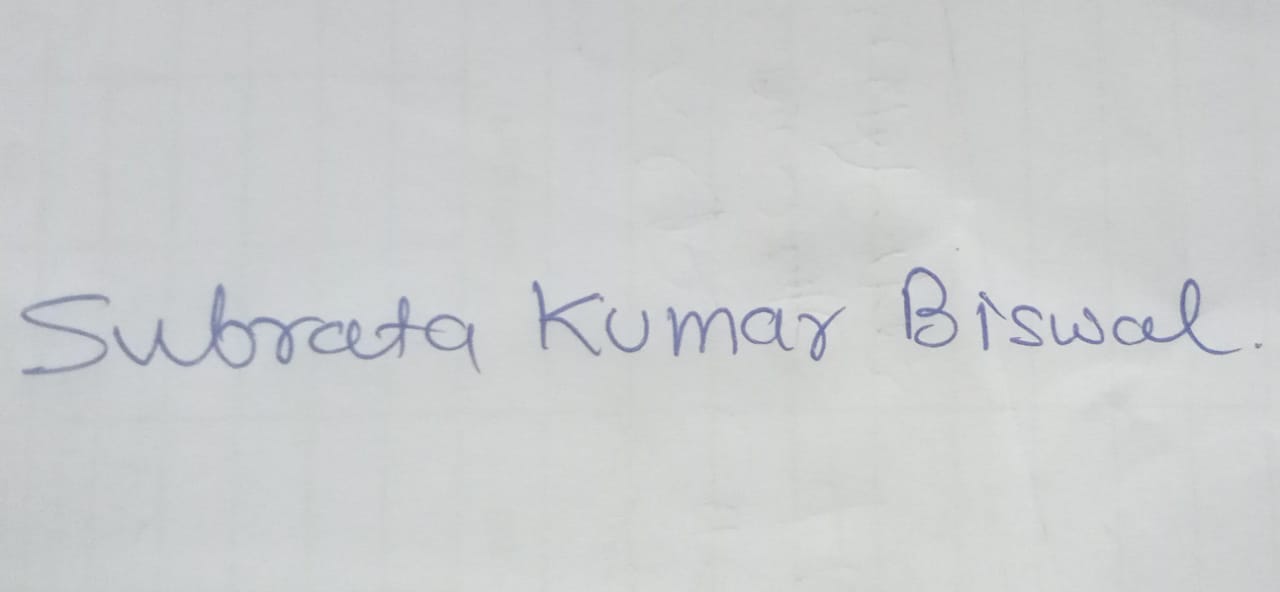 Subrata Kumar Biswal.